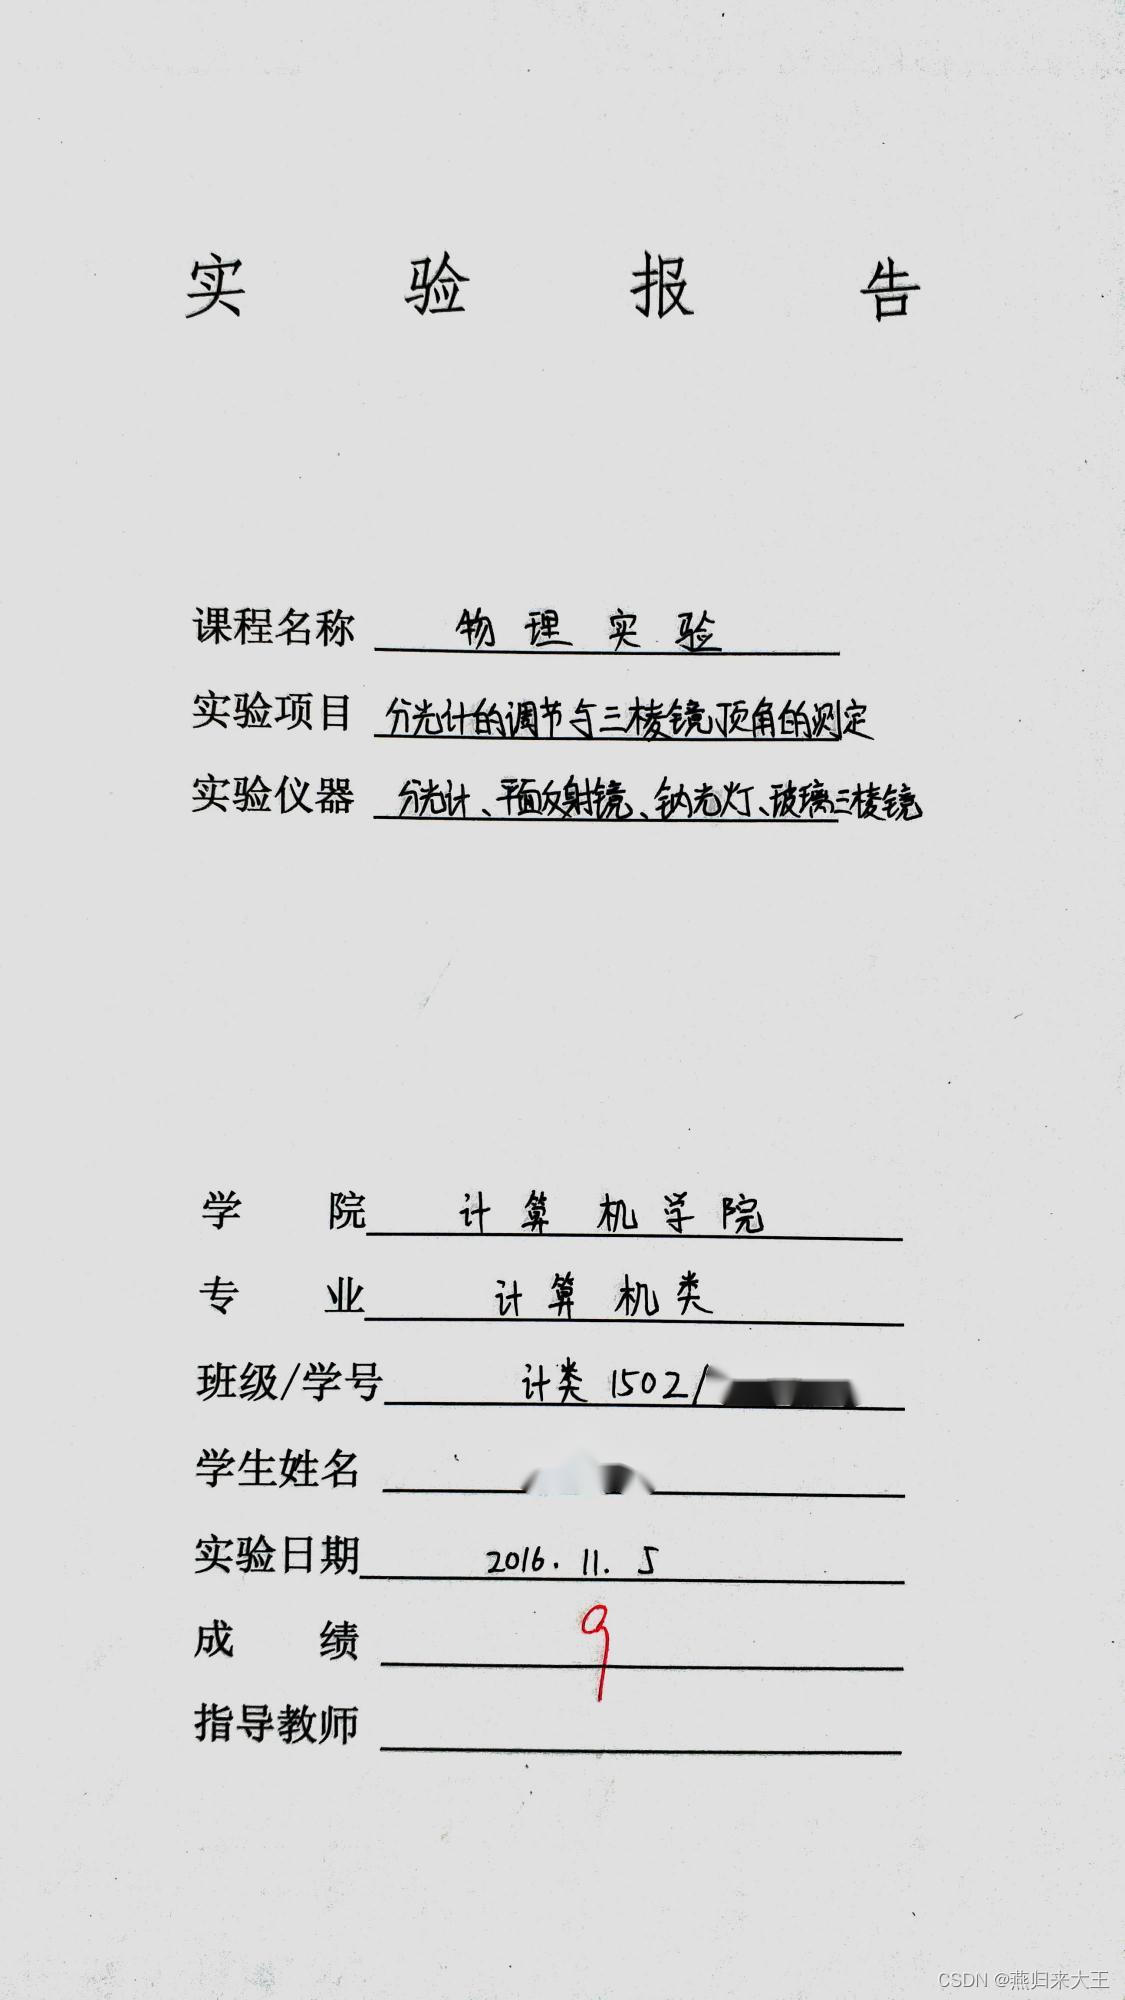 实验报告
课程名称 物理实验
实验项目 分光计的调节与三棱镜顶角的测定
实验仪器 分光计、平面反射镜、钠光灯、玻璃三棱镜
学院 计算机学院
专业 计算机类
班级/学号 计类1502/
学生姓名
实验日期 2016.11.5
成绩 9
指导教师
CSDN @燕归来大王